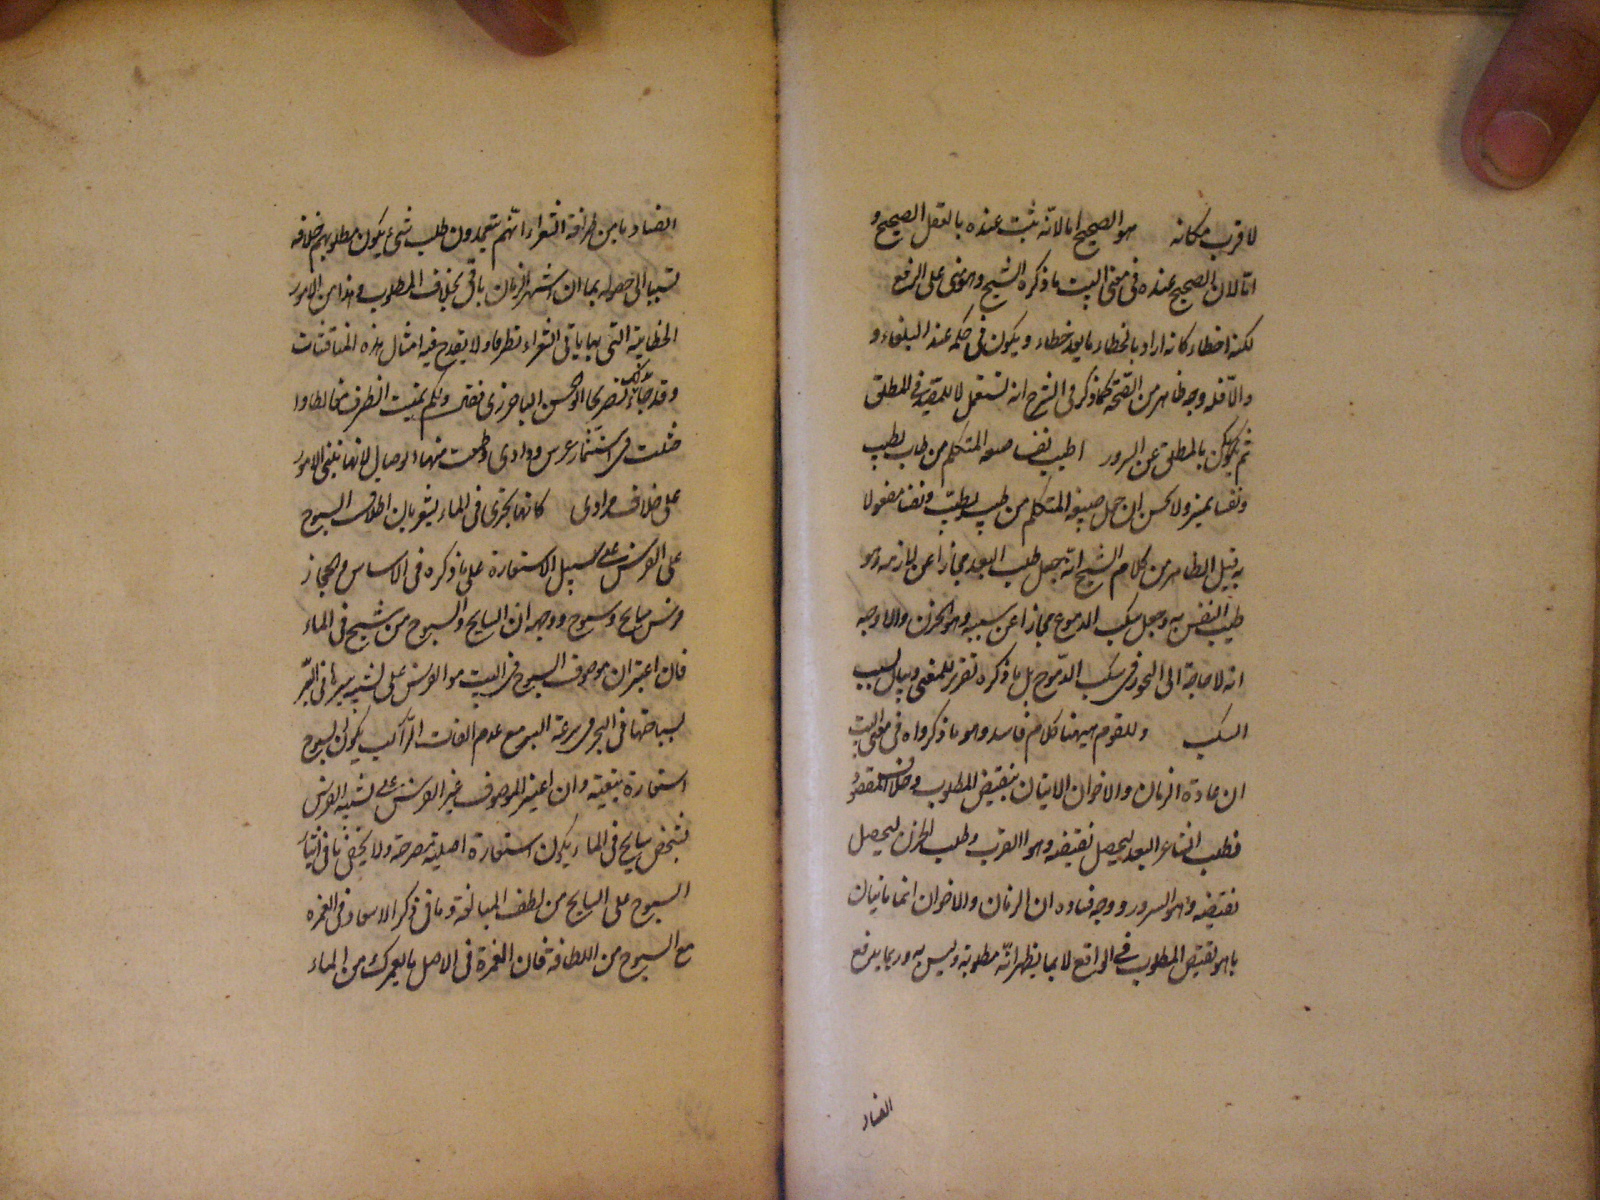 لا قرب مكانه هو الصحيح اما لانه ثبت عنده بالنقل الصحيح و
اما لان الصحيح عنده في معنى البيت ما ذكره الشيخ وهو مبنى على الرفع
لكنه اخطاء كانه اراد بالخطاء ما يعد خطاء ويكون في حكمه عند البلغاء و
والا فله وجه ظاهر من الصحة كما ذكر في الشرح انه استعمل للمقيد في المطلق
ثم يكون بالمطلق عن السرور اطيب نفسا صيغة المتكلم من طاب يطيب
ونفسا تميز ولا يحسن ان يجعل صيغة المتكلم من طيب يطيب ونفسا مفعولا
به قيل الظاهر من كلام الشيخ انه يجعل طلب البعد مجازا عن لازمه وهو
طيب النفس به وجعل سكب الدموع مجازا عن سببه وهو الحزن والاوجه
انه لا حاجة الى التجوز في سكب الدموع بل ما ذكره تقرير للمعنى وبيان لسبب
السكب وللقوم ههنا كلام فاسد وهو ما ذكروا في معنى البيت
ان عادة الزمان والاخوان الاتيان بنقيض المطلوب وخلاف المقصود
فطلب الشاعر البعد ليحصل نقيضه وهو القرب وطلب الحزن ليحصل
نقيضه وهو السرور ووجه فساده ان الزمان والاخوان انما يأتيان
بما هو نقيض المطلوب في الواقع لا بما يظهر انه مطلوبه وليس به وربما يدفع
الفساد
الفساد بان من ظرافة الشعراء انهم يتعمدون طلب شيء يكون مطلوبهم خلافه
تسببا الى حصوله بما ان اشتهر الزمان ياتى بخلاف المطلوب وهذا من الامور
الخطابية التى بها ياتى الشعراء تظرفا ولا يقدح فيه امثال هذه المناقشات
وقد جاء ذلك تصريحا ابو الحسن الباخرزى فقال ولكم تمنيت الفراق مغالطا وا
حتلت فى استثمار غرس ودادى وطمعت منها بالوصال لانها تبنى الامور
على خلاف مرادى كانها تجرى فى الماء يشعر بان اطلاق السبوح
على الفرس على سبيل الاستعارة على ما ذكره فى الاساس ومن المجاز
فرس سابح وسبوح ووجهه ان السابح والسبوح من يسبح فى الماء
فان اعتبر ان موصوف السبوح فى البيت هو الفرس على تشبيه سيرها فى البر
بسباحتها فى البحر فى سرعة السير مع عدم التفات الراكب يكون سبوح
استعارة تبعية وان اعتبر الموصوف غير الفرس على تشبيه الفرس
بشخص سابح فى الماء يكون استعارة اصلية مصرحة ولا يخفى ما فى ايثار
السبوح على السابح من لطف المبالغة وما فى ذكر الاسعاد فى الغمرة
مع السبوح من اللطافة فان الغمرة فى الاصل ما يغمرك من الماء